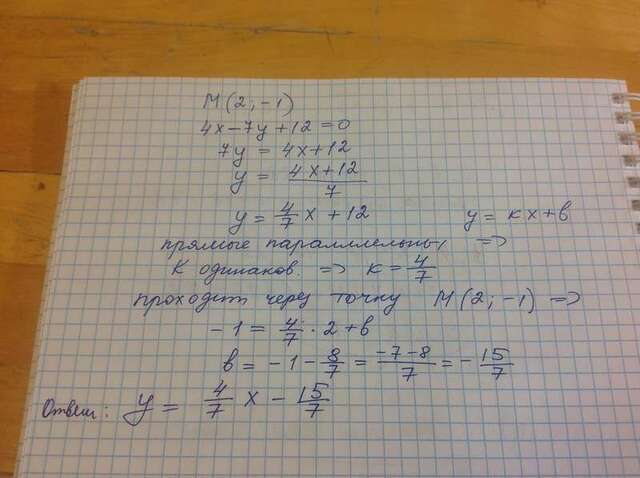 M(2;-1)
4x-7y+12=0
7y = 4x+12
y = \frac{4x+12}{7}
y = \frac{4}{7}x + 12    y = kx+в
прямые параллельны =>
К одинаков. => к = \frac{4}{7}
проходит через точку М(2;-1) =>
-1 = \frac{4}{7} · 2 + в
в = -1 - \frac{8}{7} = \frac{-7-8}{7} = -\frac{15}{7}
Ответ: y = \frac{4}{7} x - \frac{15}{7}